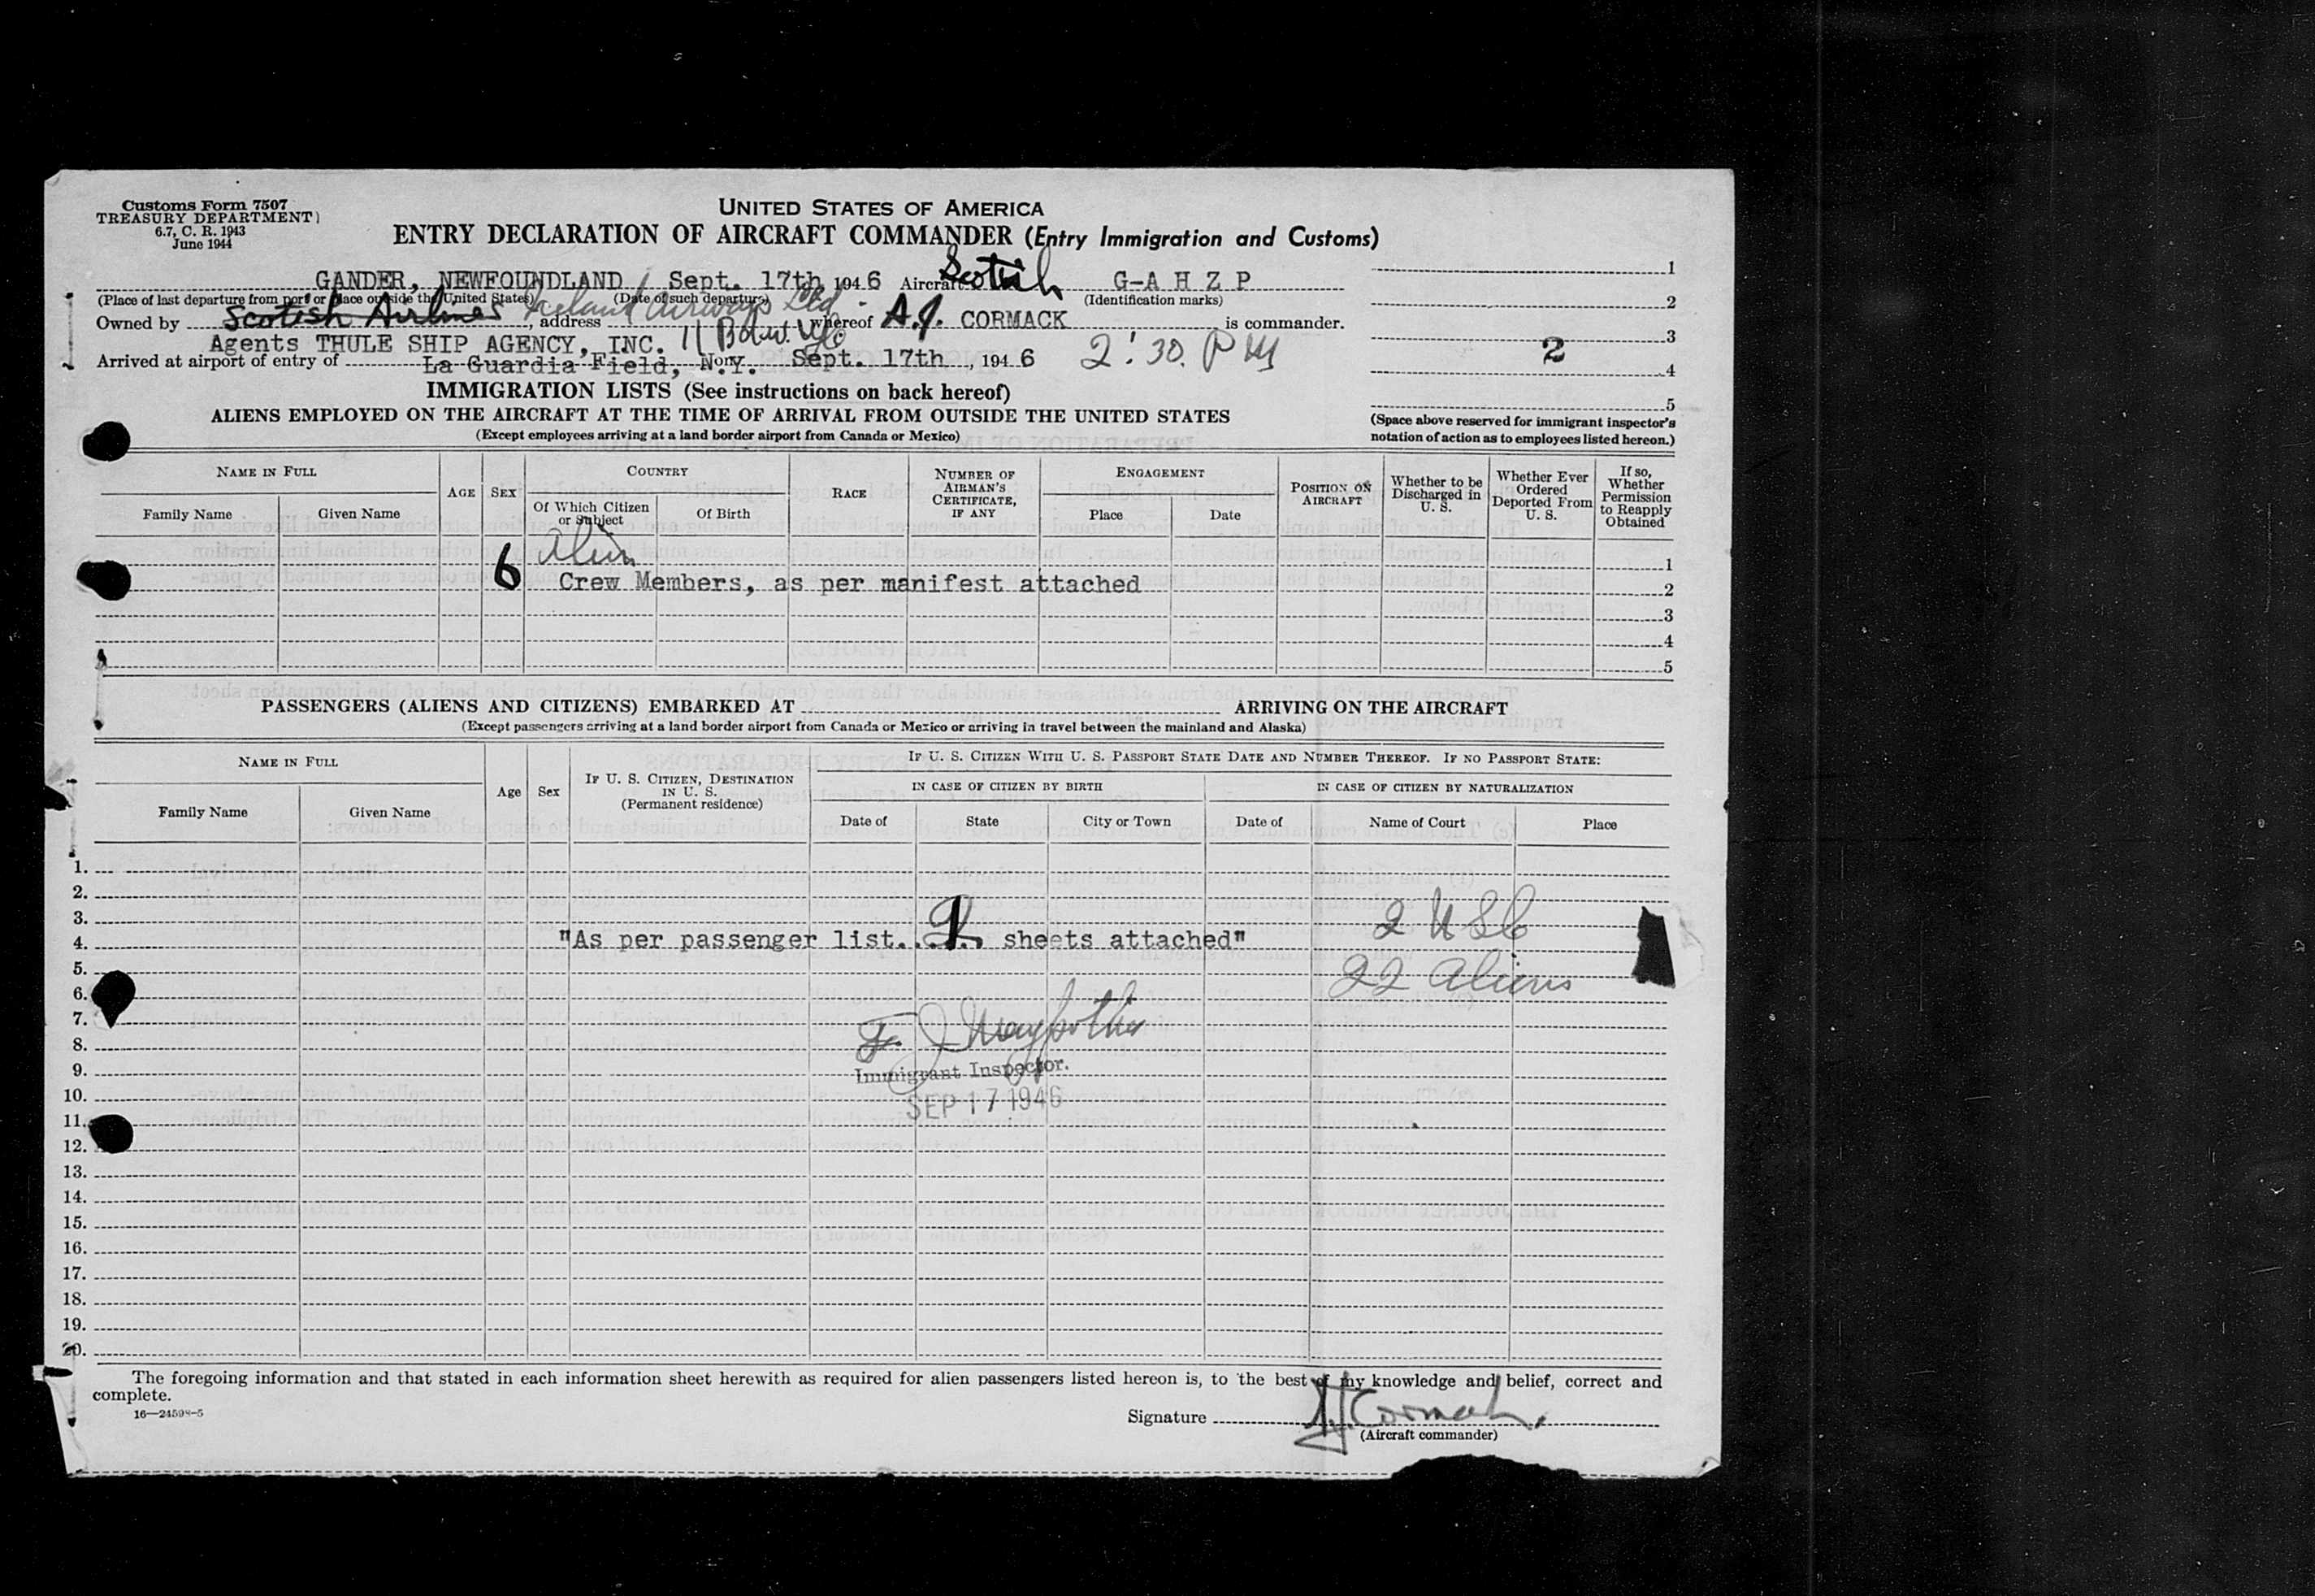 Customs Form 7507
TREASURY DEPARTMENT
6.7, C. R. 1943
June 1944
UNITED STATES OF AMERICA
ENTRY DECLARATION OF AIRCRAFT COMMANDER (Entry Immigration and Customs)
GANDER, NEWFOUNDLAND Sept. 17th 1946 Aircraft G-A H Z P
(Place of last departure from port or place outside the United States) (Date of such departure) (Identification marks)
Owned by Scotish Airlines Iceland Airways Ltd, address whereof A.J. CORMACK is commander.
Agents THULE SHIP AGENCY, INC. 11
Arrived at airport of entry of La Guardia Field, N.Y. on Sept. 17th, 1946 2:30 PM
1
2
3
2
4
5
(Space above reserved for immigrant inspector's
notation of action as to employees listed hereon.)
IMMIGRATION LISTS (See instructions on back hereof)
ALIENS EMPLOYED ON THE AIRCRAFT AT THE TIME OF ARRIVAL FROM OUTSIDE THE UNITED STATES
(Except employees arriving at a land border airport from Canada or Mexico)
NAME IN FULL
Family Name Given Name
AGE SEX
COUNTRY
Of Which Citizen or Subject Of Birth
RACE
NUMBER OF AIRMAN'S CERTIFICATE, IF ANY
ENGAGEMENT
Place Date
POSITION ON AIRCRAFT
Whether to be Discharged in U. S.
Whether Ever Ordered Deported From U. S.
If so, Whether Permission to Reapply Obtained
Alien
1
6 Crew Members, as per manifest attached
2
3
4
5
PASSENGERS (ALIENS AND CITIZENS) EMBARKED AT ARRIVING ON THE AIRCRAFT
(Except passengers arriving at a land border airport from Canada or Mexico or arriving in travel between the mainland and Alaska)
NAME IN FULL
Family Name Given Name
Age Sex
IF U. S. CITIZEN, DESTINATION IN U. S.
(Permanent residence)
IF U. S. CITIZEN WITH U. S. PASSPORT STATE DATE AND NUMBER THEREOF. IF NO PASSPORT STATE:
IN CASE OF CITIZEN BY BIRTH IN CASE OF CITIZEN BY NATURALIZATION
Date of State City or Town Date of Name of Court Place
1.
2.
3. 2 USC
4. "As per passenger list sheets attached"
5. 22 Aliens
6.
7.
8.
9. Immigrant Inspector.
10. SEP 17 1946
11.
12.
13.
14.
15.
16.
17.
18.
19.
20.
The foregoing information and that stated in each information sheet herewith as required for alien passengers listed hereon is, to the best of my knowledge and belief, correct and
complete.
16—24598-5
Signature A J Cormack.
(Aircraft commander)